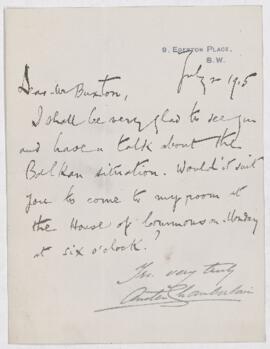 9. EGERTON PLACE,
S.W.
July 2 1915
Dear Mr Buxton,
I shall be very glad to see you
and have a talk about the
Balkan situation. Would it suit
you to come to my room at
the House of Commons on Monday
at six o'clock?
Yrs. very truly
Austen Chamberlain